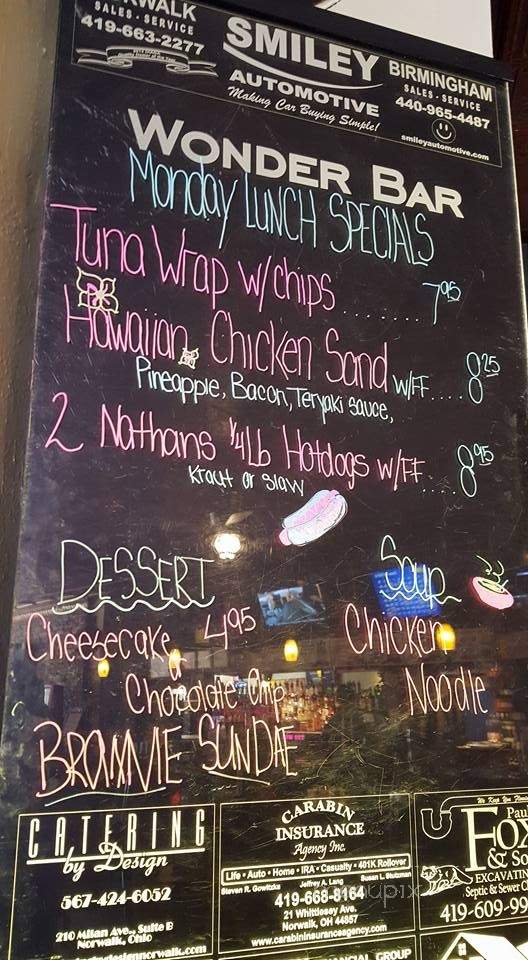 RWALK
SALES · SERVICE
419-663-2277
SMILEY
AUTOMOTIVE
Making Car Buying Simple!
BIRMINGHAM
SALES · SERVICE
440-965-4487
smileyautomotive.com
WONDER BAR
Monday LUNCH SPECIALS
Tuna Wrap w/chips ........ 7.95
Hawaiian Chicken Sand w/FF.... 8.25
Pineapple, Bacon, Teryaki sauce,
2 Nathans 1/4 Lb Hotdogs w/FF .... 8.95
Kraut or Slaw
DESSERT
Cheesecake 4.95
or
Chocolate Chip
BROWNIE SUNDAE
Soup
Chicken
Noodle
CATERING
by Design
567-424-6052
210 Milan Ave., Suite B
Norwalk, Ohio
CARABIN
INSURANCE
Agency Inc.
Life • Auto • Home • IRA • Casualty • 401K Rollover
Steven R. Gowitzka Jeffrey A. Lang Susan L. Stutzman
419-668-8164
21 Whittlesey Ave.
Norwalk, OH 44857
www.carabininsuranceagency.com
We Keep You
Pau
Fox
& So
EXCAVATIN
Septic & Sewer C
419-609-99
GROUP